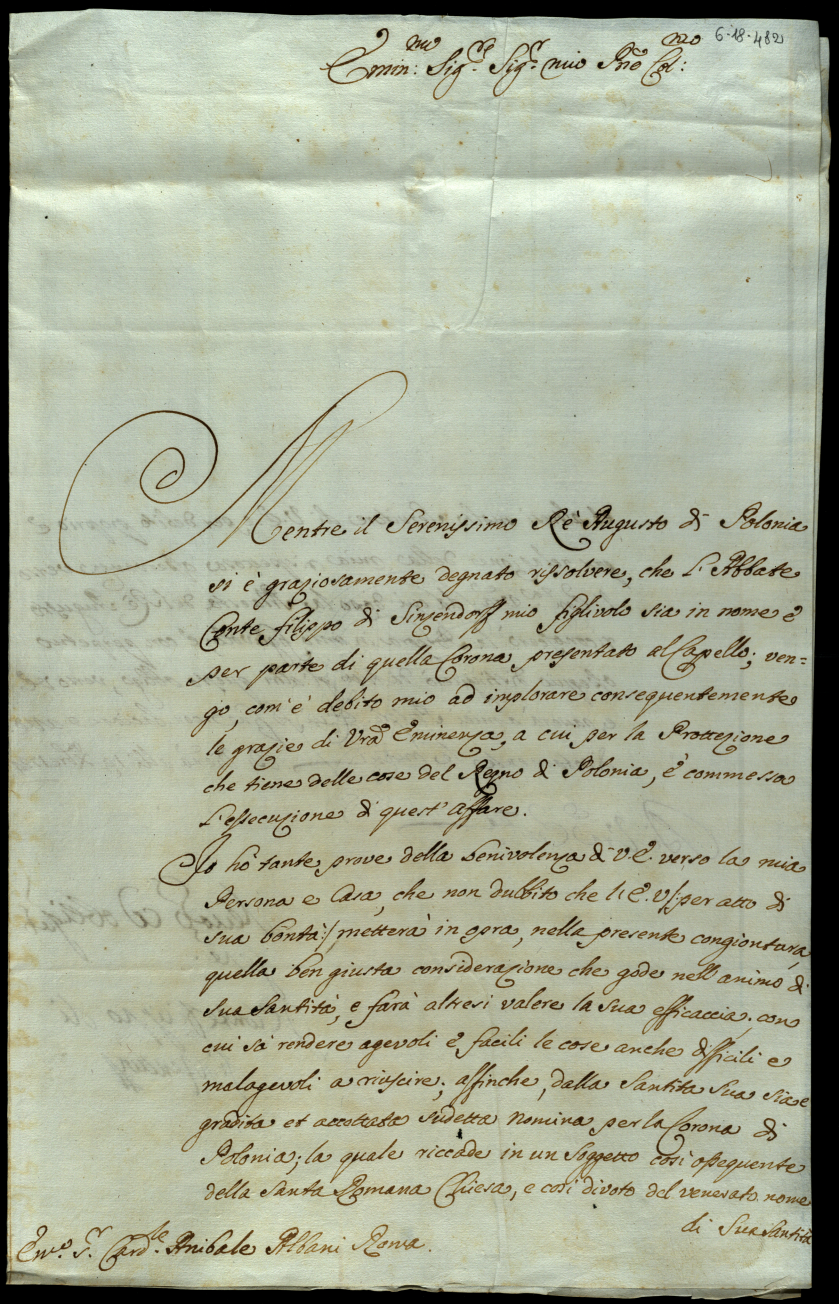 6-18-482
Emin:mo Sig.re Sig.r mio Prōe Col:mo
Mentre il Serenissimo Rè Augusto di Polonia
si è graziosamente degnato rissolvere, che l'Abbate
Conte filippo di Sinzendorff mio figlivolo sia in nome è
per parte di quella Corona presentato al Capello; ven=
go, com'è debito mio ad implorare consequentemente
le grazie di Vrā Eminenza, a cui per la Protezione
che tiene delle cose del Regno di Polonia, è commessa
l'essecuzione di quest'affare.
Io hò tante prove della benivolenza di V E. verso la mia
Persona e Casa, che non dubbito che l'E. V /: per atto di
sua bontà :/ metterà in opra, nella presente congiontura,
quella ben giusta considerazione che gode nell'animo di
Sua Santità, e farà altresi valere la sua efficaccia, con
cui sà rendere agevoli è facili le cose anche difficili e
malagevoli a riuscire; affinche, dalla Santità Sua sia
gradita et accettata sudetta nomina per la Corona di
Polonia; la quale riccade in un soggetto così ossequente
della Santa Romana Chiesa, e così divoto del venerato nome
di Sua Santità
Em.o S.r Card.le Anibale Albani Roma.